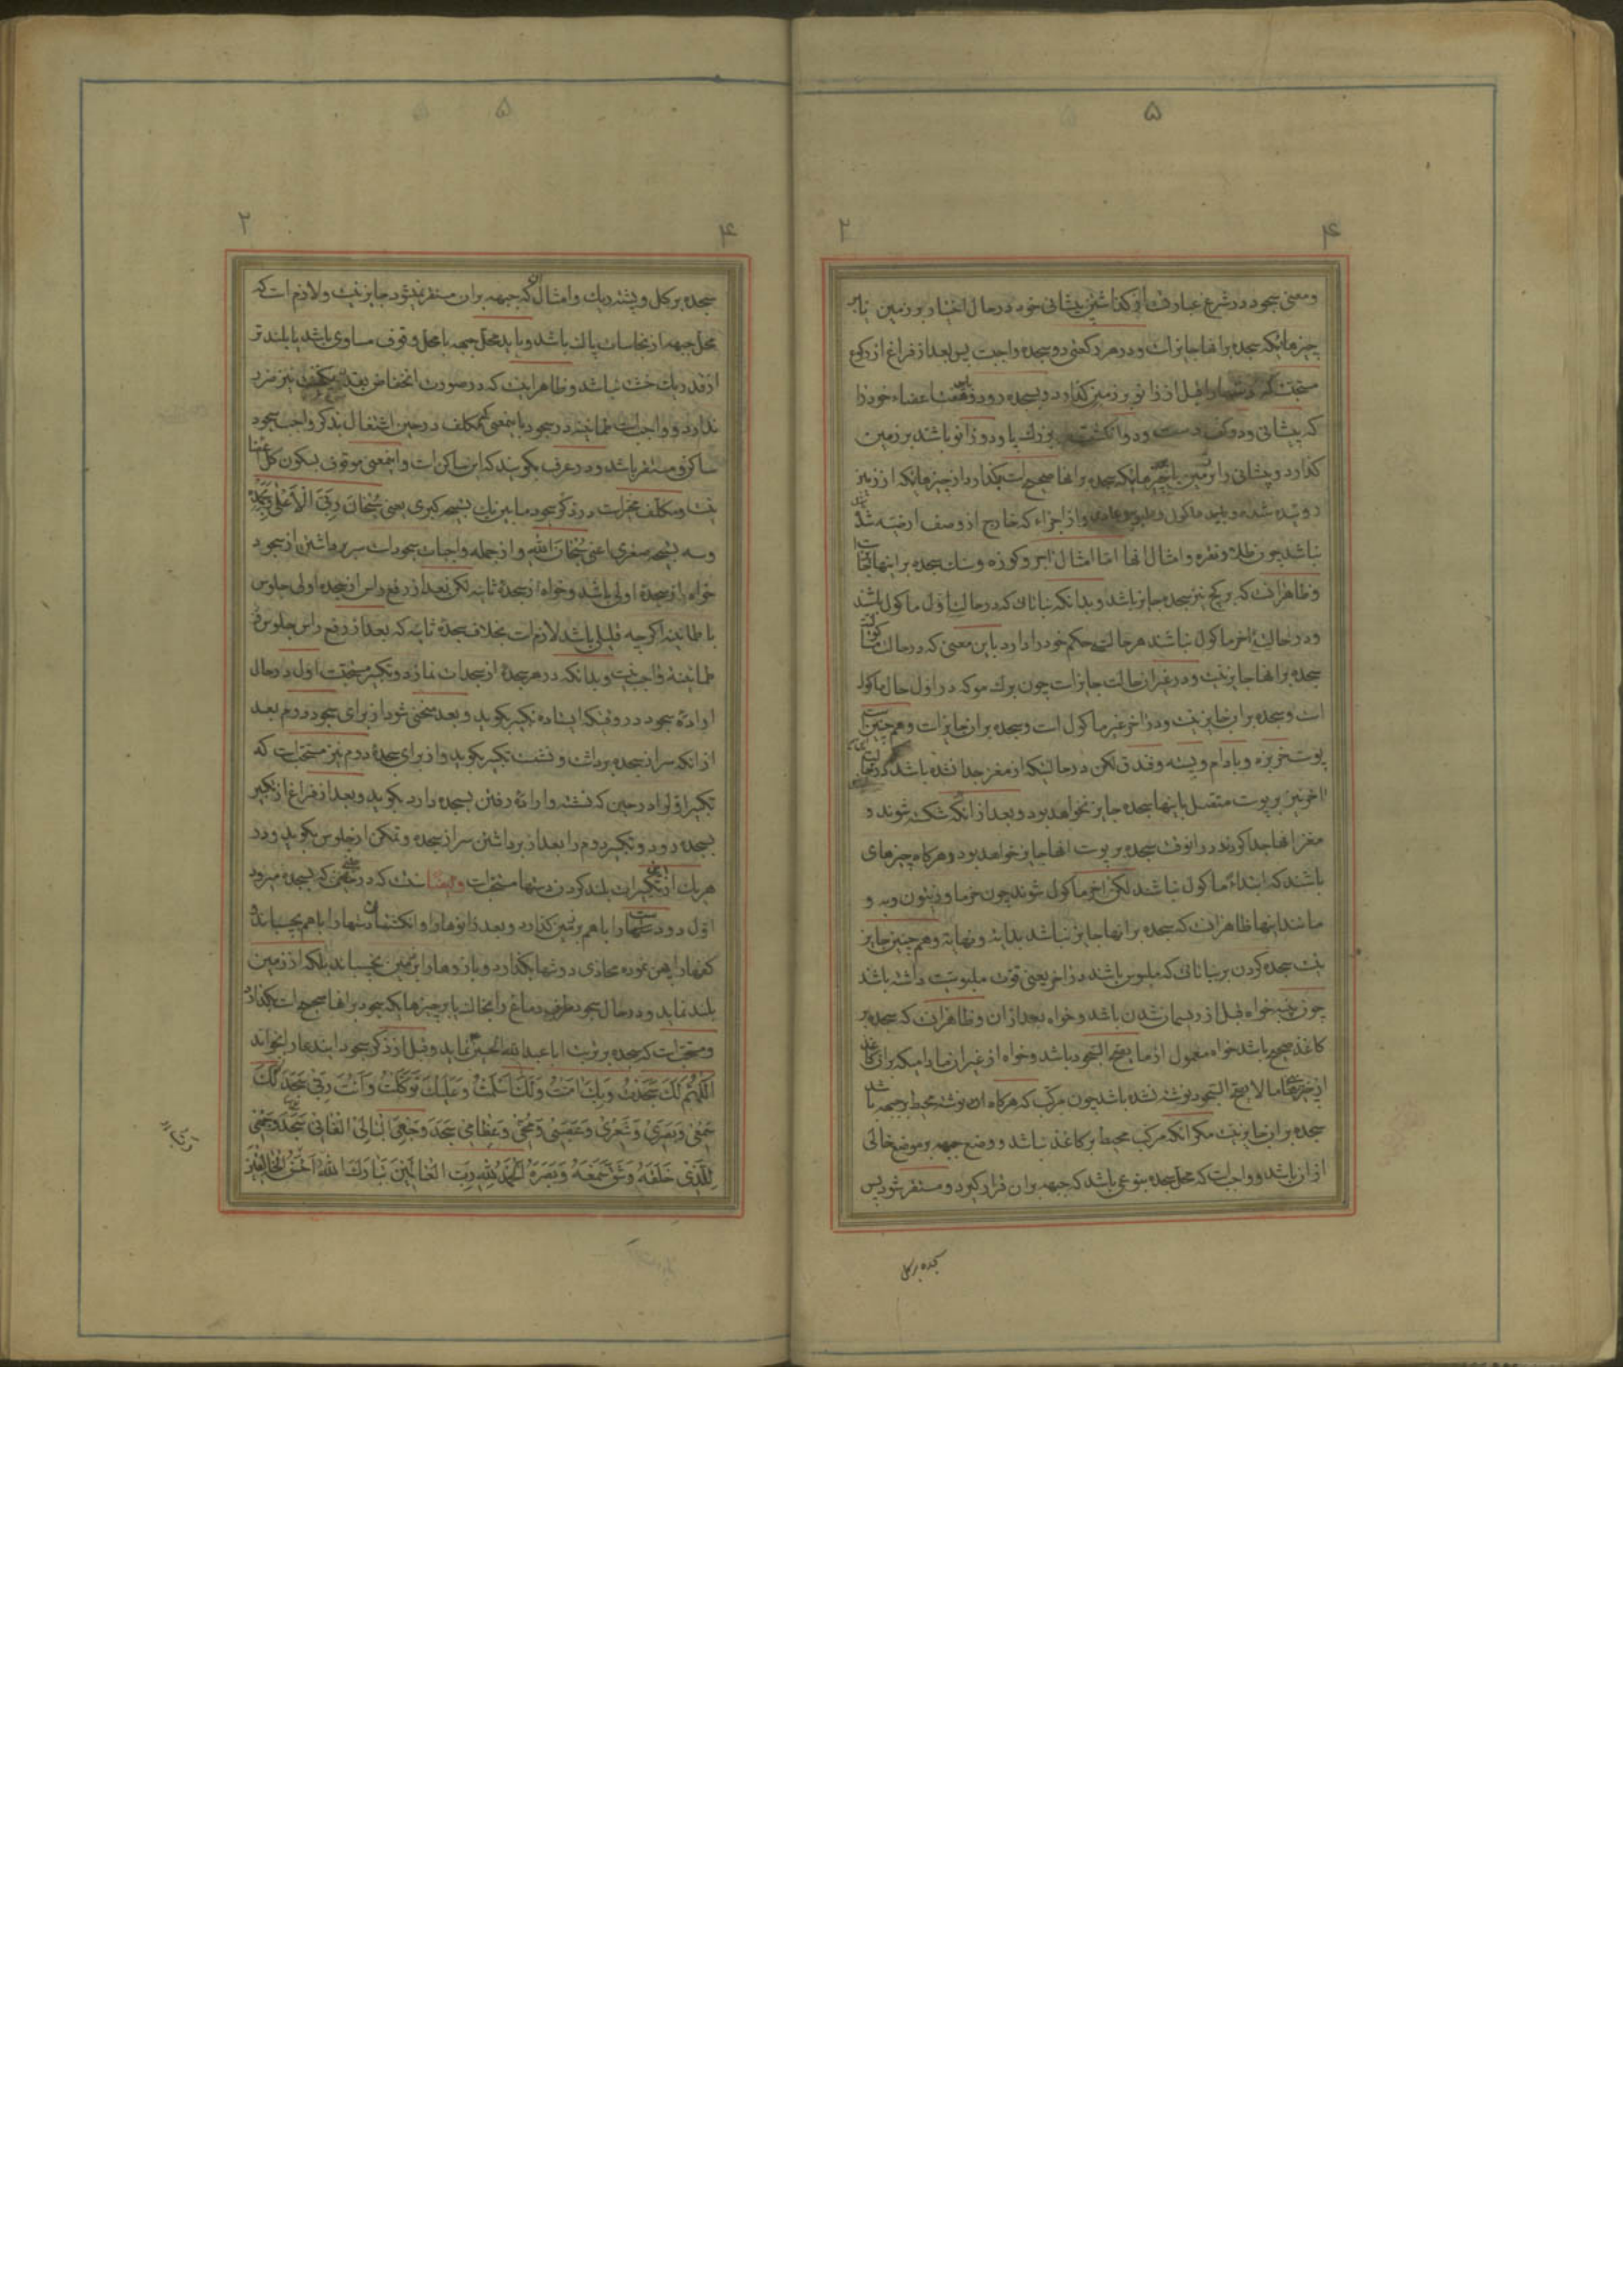 ۵
۴
۲
ومعنی سجود در شرع عبارت از گذاشتن پیشانی خود در حال اختیار بر زمین یا بر
چیزهائیکه سجده برانها جایز است و در هر رکعتی دو سجده واجبست پس بعد از فراغ از رکوع
قبل از زانو بر زمین گذارد و بسجده رود و هفت اعضاء خود را
که پیشانی و دو کف دست و دو انگشت بزرك پا و دو زانو باشند بر زمین
گذارد و پیشانی را بر زمین یا چیزهائیکه سجده برانها صحیح است بگذارد از چیزهائیکه از زمین
روئیده شده و باید ماکول و ملبوس عادی و از اجزاء که خارج از وصف ارضیه شد
نباشد چون طلا و نقره و امثال انها اما امثال اجر و کوزه و سنك سجده بر اینها
وظاهر انست که بر کچ نیز سجده جایز باشد و بدانکه نباتات که در حالت اول ماکول باشند
و در حالت اخر ماکول نباشند هر حالت حکم خود را دارد باین معنی که در حالت
سجده برانها جایز نیست و در غیر ان حالت جایز است چون برك مو که در اول حال ماکول
است و سجده بران جایز نیست و در اخر غیر ماکول است و سجده بران جایز است وهم چنین
پوست خربزه و بادام و پسته و فندق لکن در حالتیکه از مغز جدا نشده باشد
اخر نیز بر پوست متصل باینها سجده جایز نخواهد بود و بعد از انکه شکسته شوند و
مغز انها جدا کردند در انوقت سجده بر پوست انها جایز خواهد بود و هرکاه چیزهای
باشند که ابتداءً ماکول نباشند لکن اخر ماکول شوند چون خرما و زیتون و به و
مانند اینها ظاهر انست که سجده برانها جایز نباشد بدایة و نهایة وهم چنین جایز
نیست سجده کردن بر نباتاتی که ملبوس باشند در اخر یعنی قوت ملبوسیت داشته باشد
چون پنبه خواه قبل از ریسمان شدن باشد و خواه بعد از ان و ظاهر انست که سجده بر
کاغذ صحیح باشد خواه معمول از ما یصح السجود باشد و خواه از غیر ان مادامیکه بران کاغذ
از چیزهای ما لا یصح السجود نوشته نشده باشد چون مرکب که هرکاه ان نوشته محیط بر جبهه باشد
سجده بران جایز نیست مکر انکه مرکب محیط بر کاغذ نباشد و وضع جبهه بر موضع خالی
از ان باشد و واجب است که محل سجده بنوعی باشد که جبهه بران قرار کیرد و مستقر شود پس
سجده بر کل
۵
۴
۲
سجده بر کل و پشته ریك و امثال ان که جبهه بران مستقر نمیشود جایز نیست و لازم است که
محل جبهه از نجاسات پاك باشد و باید محل جبهه با محل وقوف مساوی باشد یا بلند تر
از قدر یك خشت نباشد و ظاهر اینست که در صورت انخفاض بقدر نیز ضرر
ندارد و واجب است طمانینه در سجود باینمعنی که مکلف در حین اشتغال بذکر واجب سجود
ساکن و مستقر باشد و در عرف بکویند که این ساکن است و اینمعنی موقوف بسکون کل اعضا
نیست و مکلف مخیر است در ذکر سجود مابین یك تسبیح کبری یعنی سُبْحانَ رَبِّیَ الْاَعْلی وَبِحَمْدِهِ
وسه تسبیح صغری اعنی سُبْحانَ اللهِ و از جمله واجبات سجودات سر برداشتن از سجود
خواه از سجدهٔ اولی باشد و خواه از سجدهٔ ثانیه لکن بعد از رفع راس از سجده اولی جلوس
با طمانینه اکرچه قلیلی باشد لازم است بخلاف سجدهٔ ثانیه که بعد از رفع راس جلوس و
طمانینهٔ واجب نیست و بدانکه در هر سجدهٔ از سجدات نماز دو تکبیر مستحبست اول در حال
ارادهٔ سجود در وقتیکه ایستاده تکبیر بکوید و بعد منحنی شود از برای سجود دوم بعد
از انکه سر از سجده برداشت و نشست تکبیر بکوید و از برای سجدهٔ دوم نیز مستحب است که
تکبیر اولرا در حین که نشسته و ارادهٔ رفتن بسجده دارد بکوید و بعد از فراغ از تکبیر
بسجده رود و تکبیر دوم را بعد از برداشتن سر از سجده و تمکن از جلوس بکوید و در
هر یك از تکبیرات بلند کردن دستها مستحب است و ایضا سنت که در حینی که بسجده میرود
اول دو دستها را باهم بر زمین کذارد و بعد زانوها را و انکشتهای دستها را باهم بچسباند و
کفها را پهن نموده محاذی دوشها بگذارد و بازوها را بر زمین نچسباند بلکه از زمین
بلند نماید و در حال سجود طرف دماغ را بخاك یا بر چیزهائیکه سجود برانها صحیح است بگذارد
و مستحب است که سجده بر تربت ابا عبدالله الحسین نماید و قبل از ذکر سجود ایندعا را بخواند
اَللّهُمَّ لَكَ سَجَدْتُ وَبِكَ امَنْتُ وَلَكَ اَسْلَمْتُ وَعَلَیْكَ تَوَکَّلْتُ وَاَنْتَ رَبّی سَجَدَ لَكَ
سَمْعی وَبَصَری وَشَعْری وَعَصَبی وَمُخّی وَعِظامی سَجَدَ وَجْهِیَ الْبالِی الْفانی سَجَدَ وَجْهی
لِلَّذی خَلَقَهُ وَشَقَّ سَمْعَهُ وَبَصَرَهُ اَلْحَمْدُ لِلّهِ رَبِّ الْعالَمینَ تَبارَكَ اللهُ اَحْسَنُ الْخالِقینَ